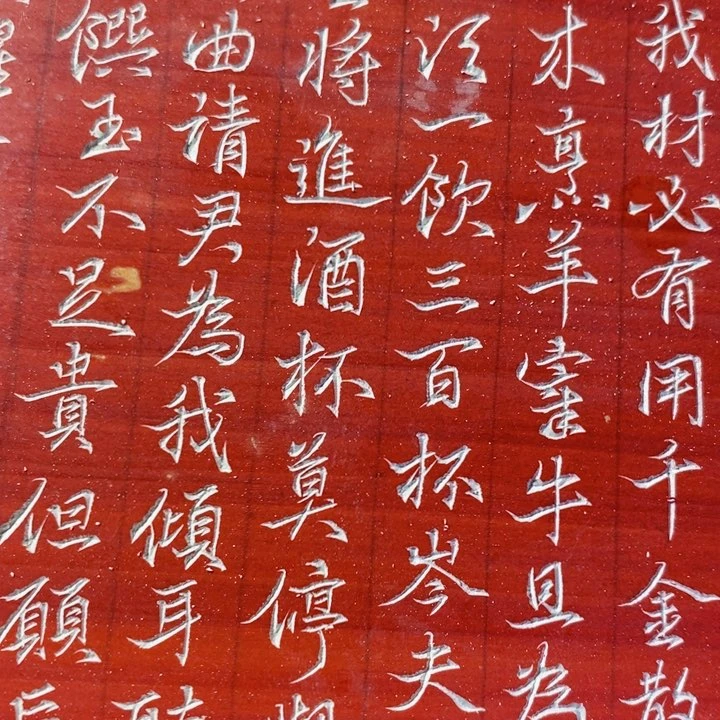 我材必有用千金散
来烹羊宰牛且為
須一飲三百杯岑夫
將進酒杯莫停
曲請君為我傾耳
饌玉不足貴但願